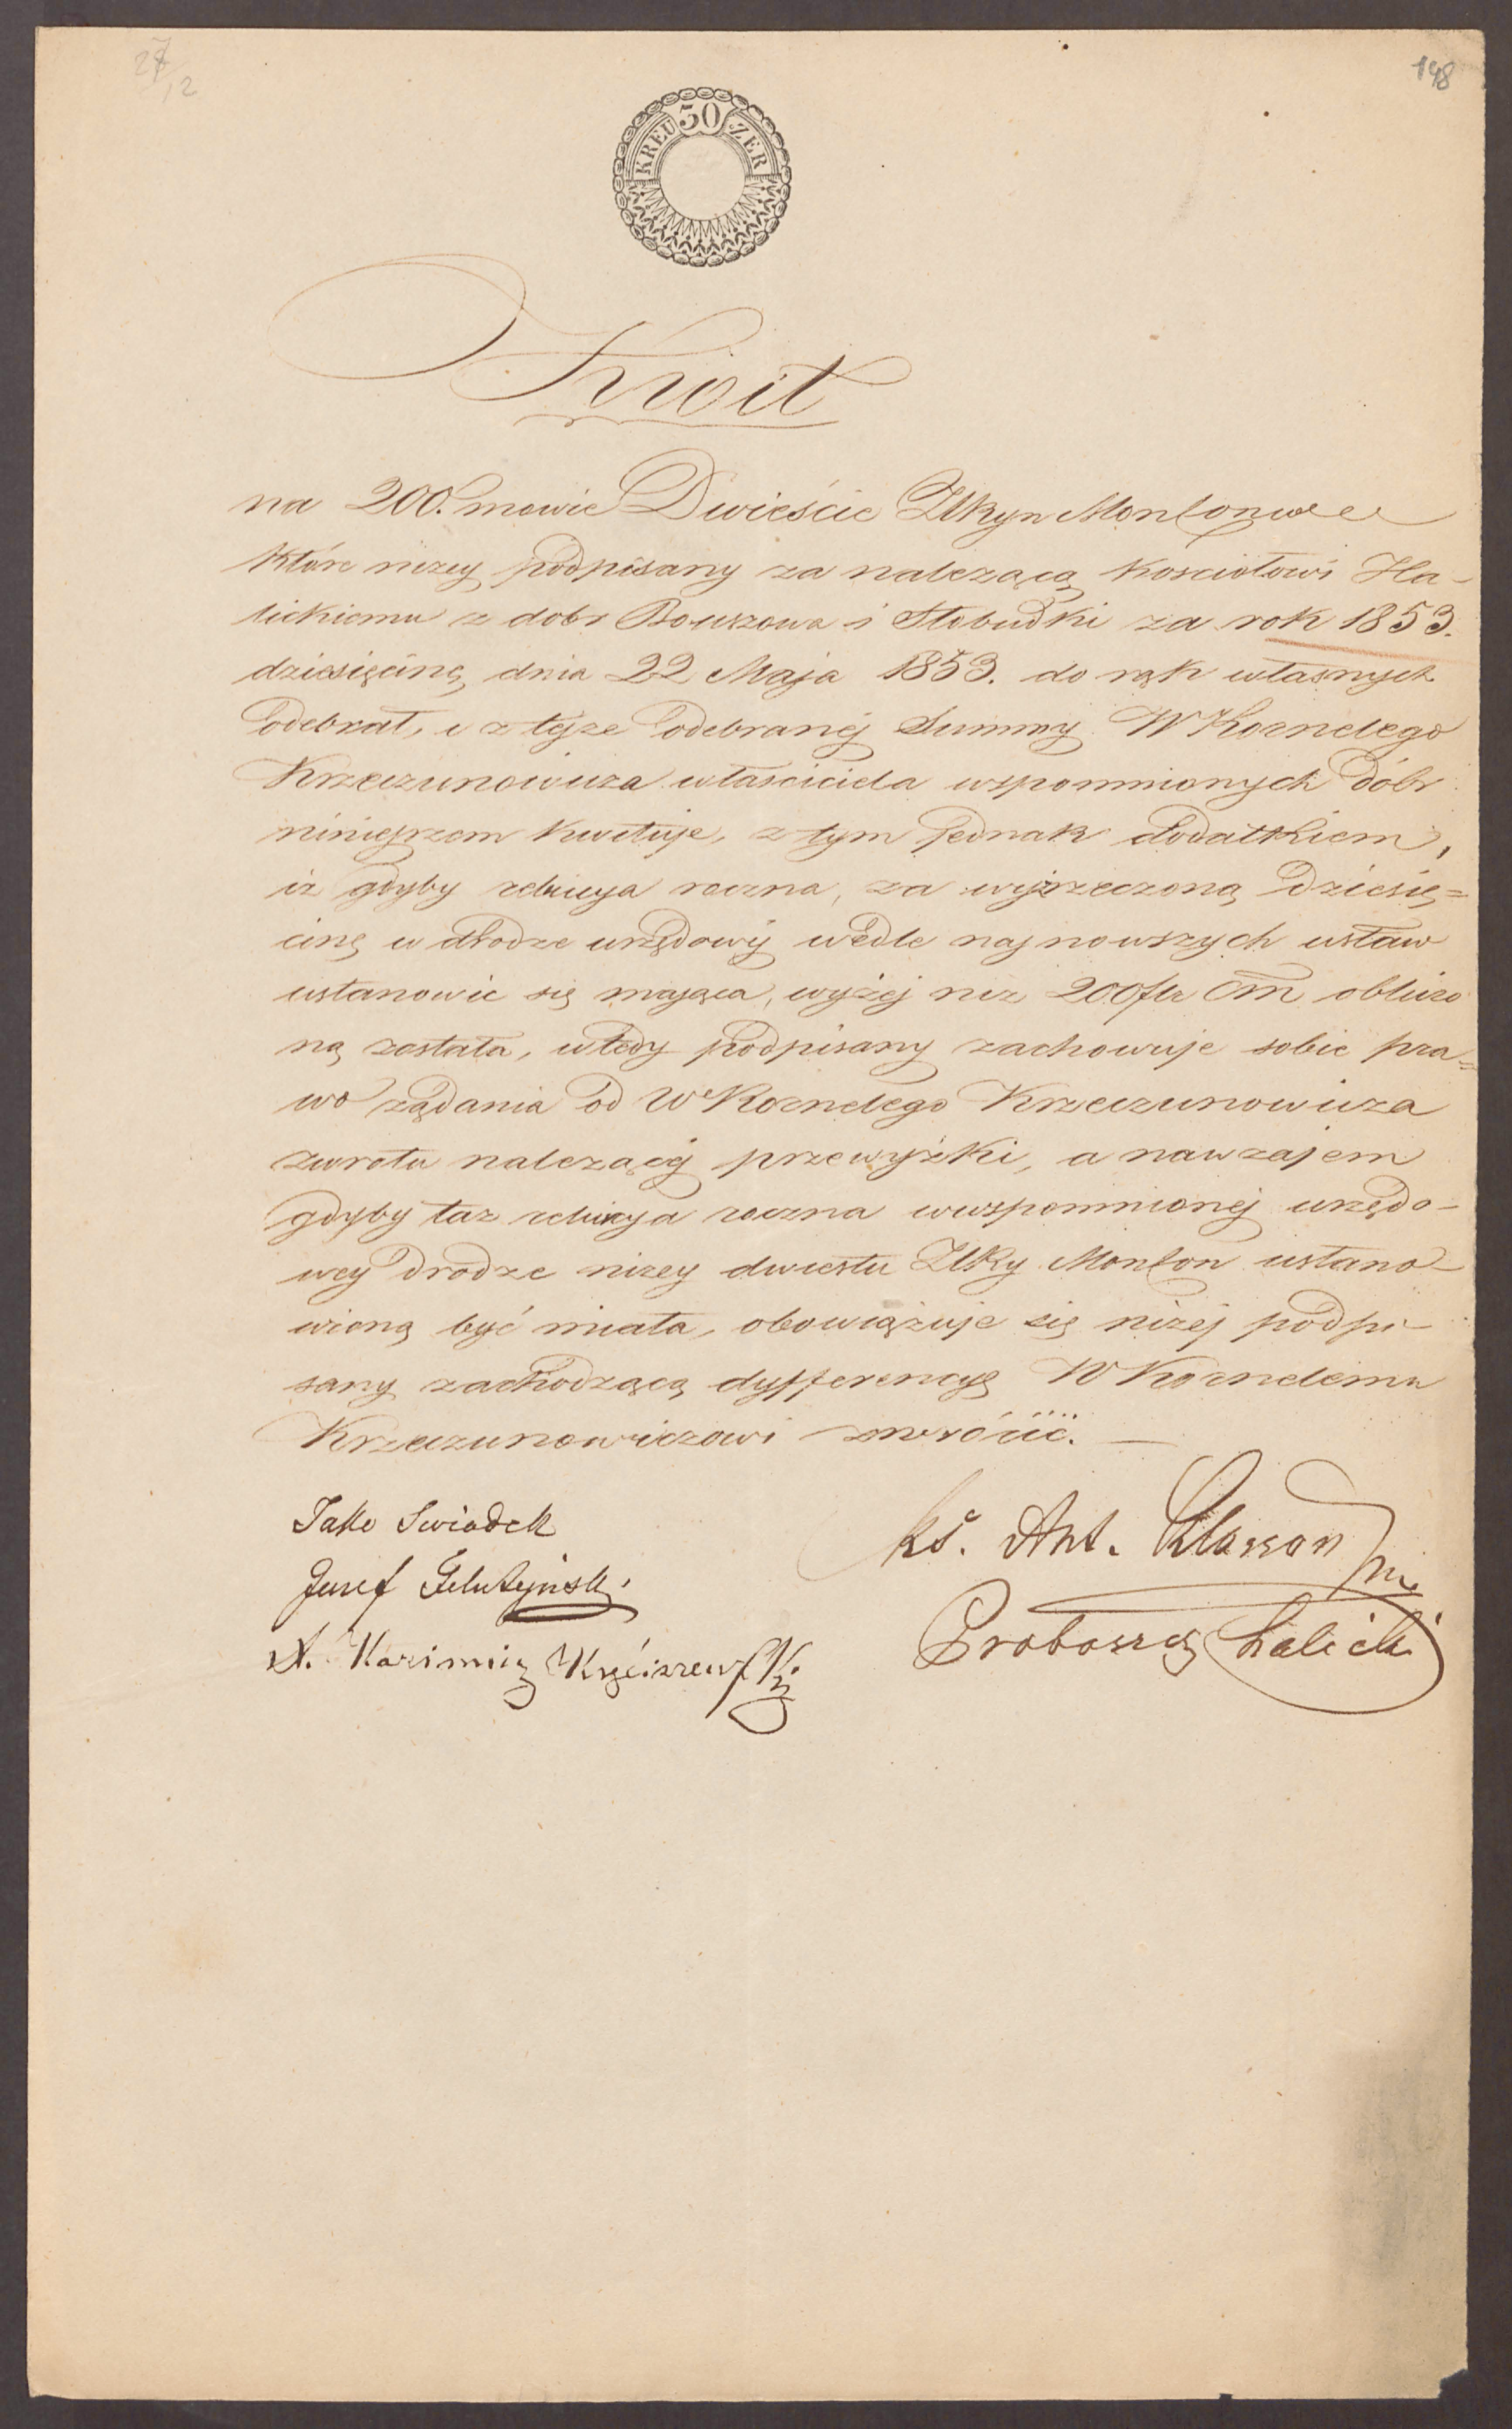 198
30
KREU ZER
Kwit
na 200. mowie Dwieście ZłRyn Monkonwee
które niżey podpisany za należącą kościołowi Ha-
lickiemu z dobr Bouszowa i Słobudki za rok 1853.
dziesięcinę dnia 22 Maja 1853. do rąk własnych
odebrał, i z tejże odebranéj Summy W Kornelego
Krzeczunowicza właściciela wspomnionych dóbr
niniejszem kwituje, z tym jednak dodatkiem,
iż gdyby relucya roczna, za wyżrzeczoną dziesię=
cinę w drodze urzędowéj wedle najnowszych ustaw
ustanowić się mająca, wyżéj niż 200 flr CM obliczo
ną została, wtedy podpisany zachowuje sobie pra=
wo żądania od W Kornelego Krzeczunowicza
zwrotu należącéj przewyżki, a nawzajem
gdyby taż relucya roczna wwspomnionéj urzędo-
wey drodze niżey dwiestu ZłRy Monkon ustano-
wioną być miała, obowiązuje się niżéj podpi-
sany zachodzącą dyfferencyę W Kornelemu
Krzeczunowiczowi zwrócić. —
Jako Swiadek
Jusef
A. Kazimirz
ks. Ant. Klasson mp.
Proboszcz halicki